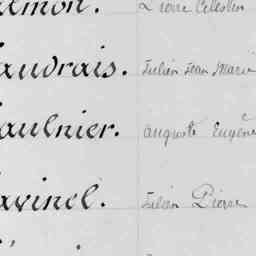 Pierre Célestin
audrais. Julien Jean Marie
aulnier. Auguste Eugène
avinel. Julien Pierre